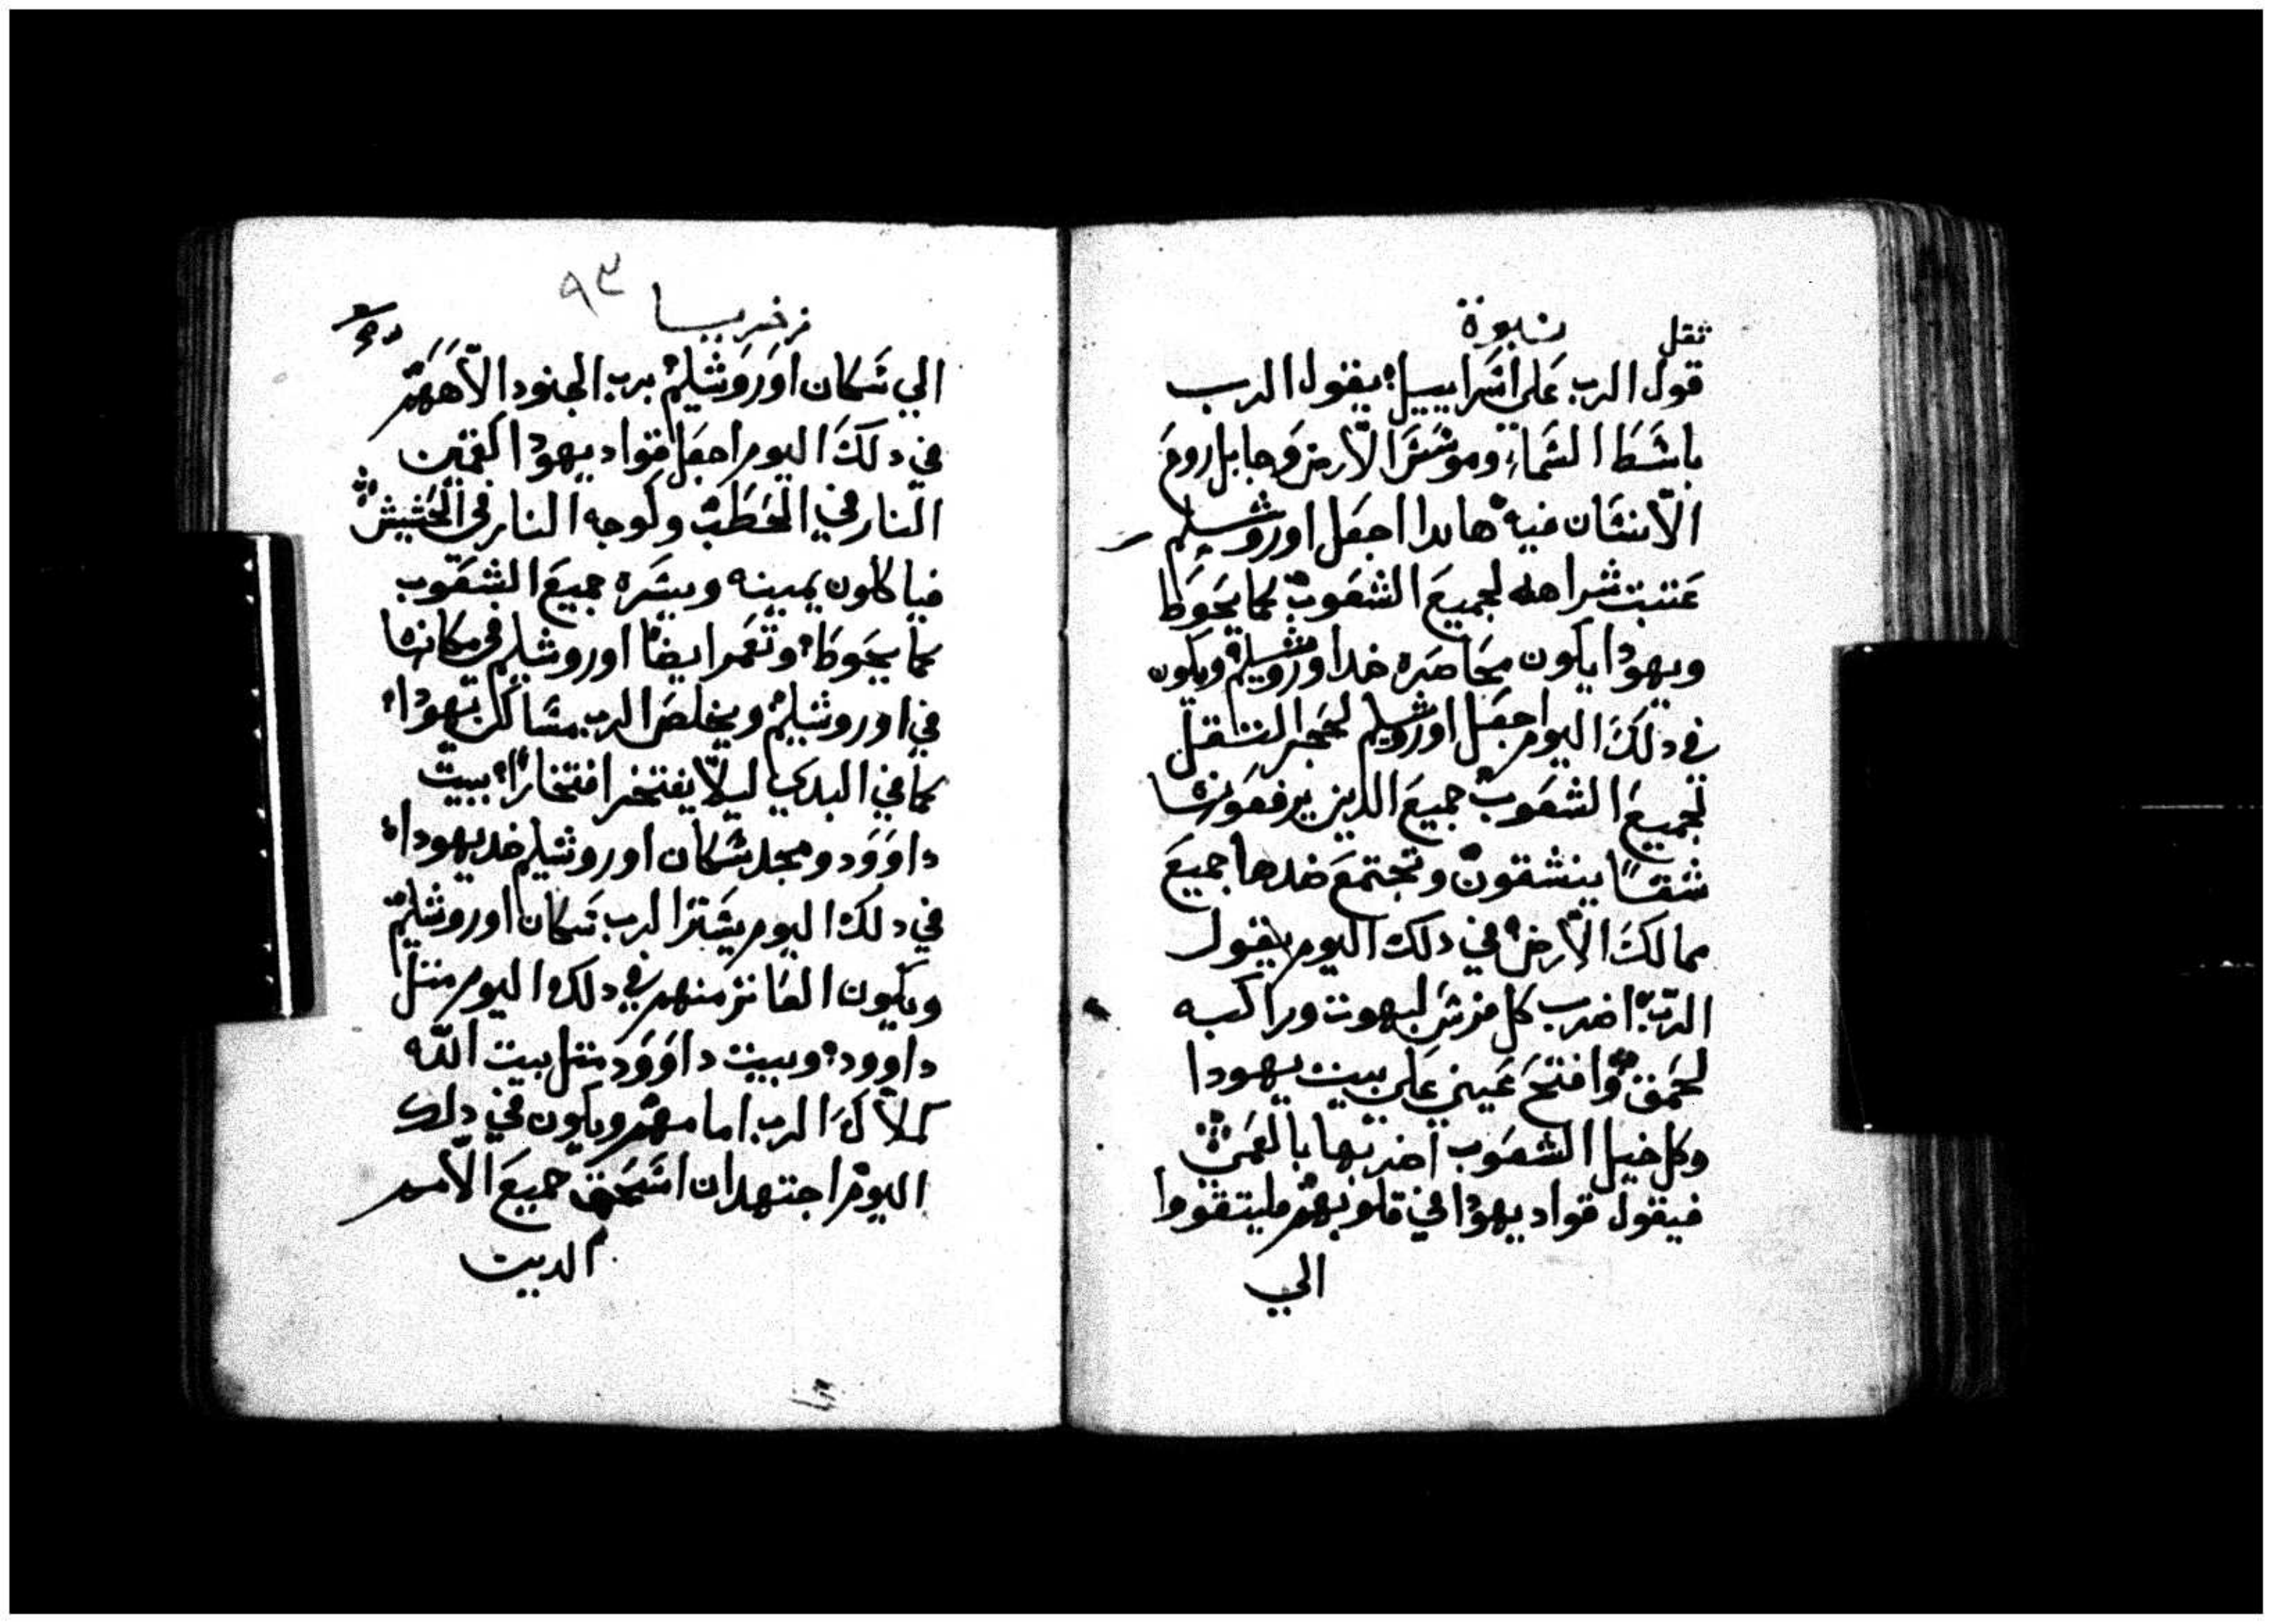 نبوة
ثقل
قول الرب على اسراييل؛ يقول الرب
باسط السماء وموسس الارض وجابل روح
الانسان فيه هاندا اجعل اوروشليم
عتبت شراهه لجميع الشعوب كما يحوط
ويهودا يكون محاصره ضد اوروشليم ويكون
في دلك اليوم اجعل اوروشليم لحجر التقل
لجميع الشعوب جميع الدين يرفعونها
شقًا ينشقون وتجتمع ضدها جميع
ممالك الارض في دلك اليوم يقول
الرب اضرب كل فرس لبهوت وراكبه
لحمق وافتح عيني على بيت يهودا
وكل خيل الشعوب اضربها بالعمي
فيقول قواد يهودا في قلوبهم فليتقووا
الي
زخريا
٩٣
الي سكان اوروشليم برب الجنود الاههم
في دلك اليوم اجعل قواد يهودا كقمين
النار في الحطب وكوجه النار في الحشيش
فياكلون يمينه ويسره جميع الشعوب
كما يحوط وتعمر ايضًا اوروشليم في مكانها
في اوروشليم ويخلص الرب مساكن يهودا
كما في البدي ليلا يفتخر افتخارًا بيت
داوود ومجد سكان اوروشليم ضد يهودا
في دلك اليوم يستر الرب سكان اوروشليم
ويكون العاثر منهم في دلك اليوم متل
داوود وبيت داوود متل بيت الله
كملاك الرب امامهم ويكون في دلك
اليوم اجتهد ان اسحق جميع الامم
الديت